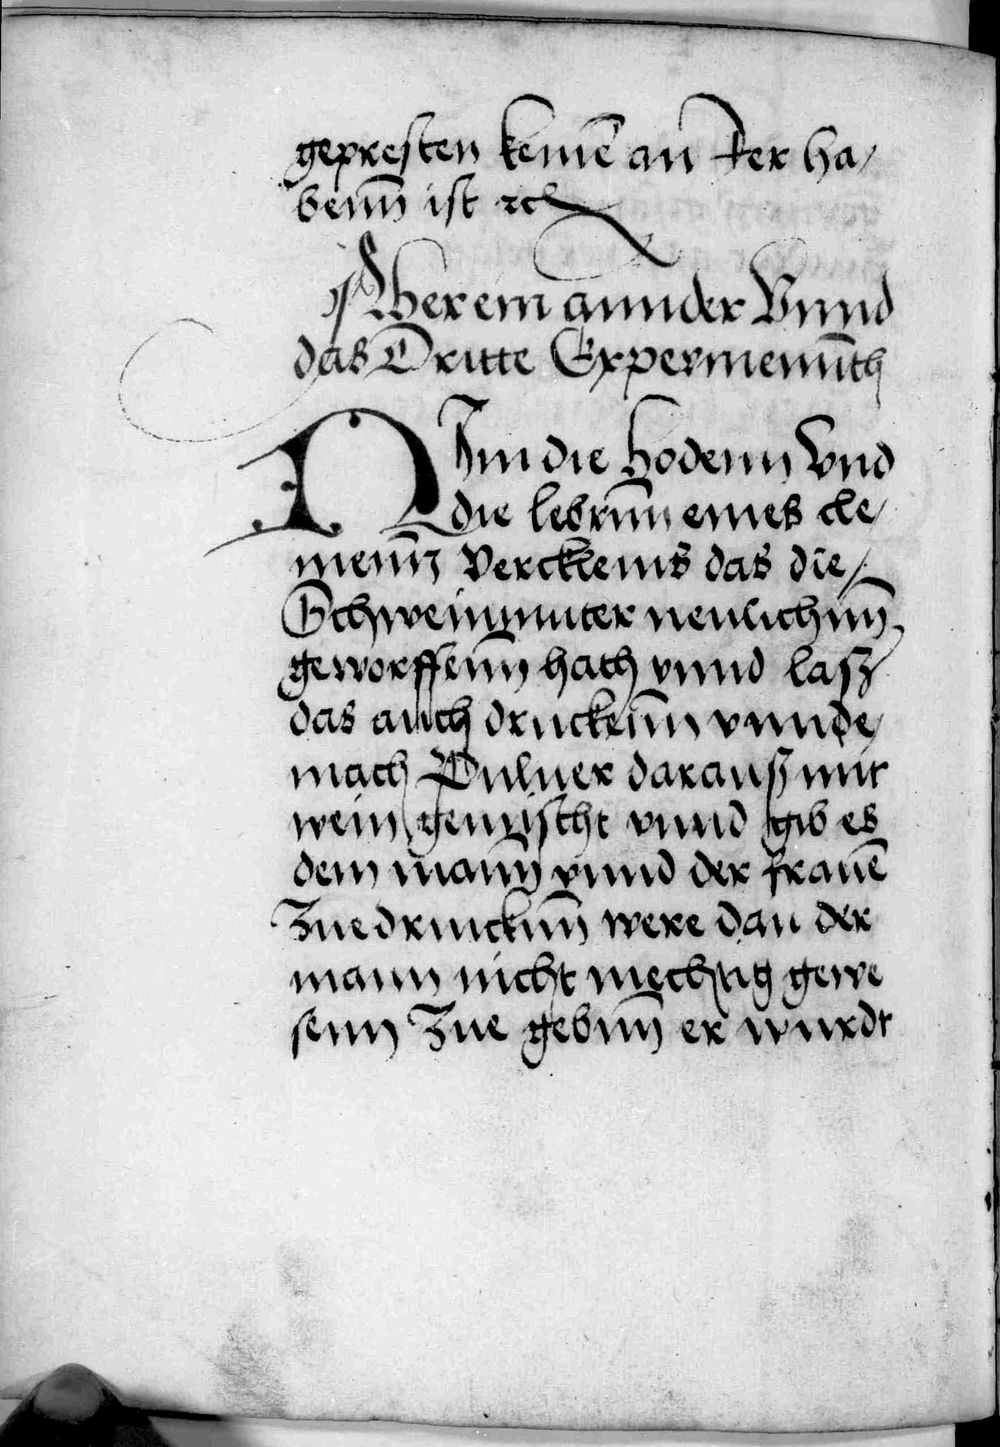 gepresten keinē an der ha/
benn̄ ist ꝛc
Aber ein annder Vnnd
das Dritte Experimennt̄h
NJm die hodenn Vnd
die lebrnn̄ eines cle/
menn̄ Verckleins das die/
Schweinmuter neulichnn̄
geworffenn̄ hath vnnd lasz
das auch druckenn̄ vnnde/
mach Puluer darausz mit
wein gemischt vnnd gib es
dem mann vnnd der frauē
Zue drincknn̄ were dan der
mann nicht mechtig gewe
senn Zue gebnn̄ er wurdt